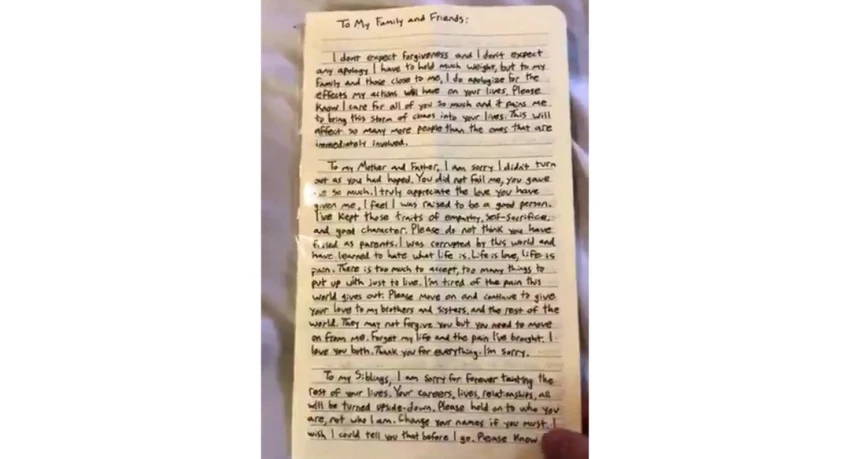 To My Family and Friends:
I dont expect forgiveness and I don't expect
any apology I have to hold much weight, but to my
family and those close to me, I do apologize for the
effects my actions will have on your lives. Please
know I care for all of you so much and it pains me
to bring this storm of chaos into your lives. This will
affect so many more people than the ones that are
immediately involved.
To my Mother and Father, I am sorry I didn't turn
out as you had hoped. You did not fail me, you gave
me so much. I truly appreciate the love you have
given me, I feel I was raised to be a good person.
I've kept those traits of empathy, self-sacrifice,
and good character. Please do not think you have
failed as parents. I was corrupted by this world and
have learned to hate what life is. Life is love, life is
pain. There is too much to accept, too many things to
put up with just to live. I'm tired of the pain this
world gives out. Please move on and continue to give
your love to my brothers and sisters, and the rest of the
world. They may not forgive you but you need to move
on from me. Forget my life and the pain I've brought. I
love you both. Thank you for everything. I'm sorry.
To my Siblings, I am sorry for forever tainting the
rest of your lives. Your careers, lives, relationships, all
will be turned upside-down. Please hold on to who you
are, not who I am. Change your names if you must. I
wish I could tell you that before I go. Please know